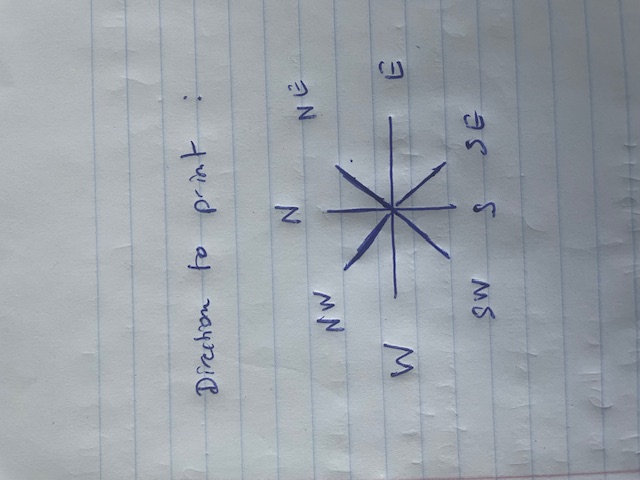 Direction to print :
N
NW NE
W E
SW S SE